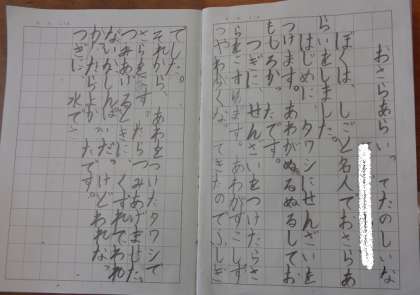 おさらあらい。てたのしいな
ぼくは、しごと名人でおさらあ
らいをしました。
はじめに、タワシにせんざいを
つけます。あわがぬるぬるしてお
もしろかったです。
つぎに、せんざいをつけたらさ
らをこすります。あわがすこしず
つやわらかくなってきたのでふしぎ
でした。
それから、あわをつけたタワシで
さらをこすったらつみあげました。
つみあげるときに、くずれてわれ
ないかしんぱいだったけどわれな
かったらよかったです。
つぎに水でさ